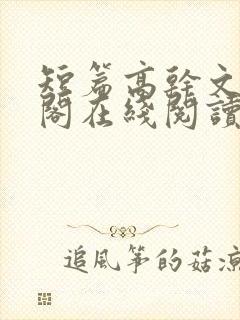 短篇高幹文
閣在綫閱讀
追風筝的菇涼